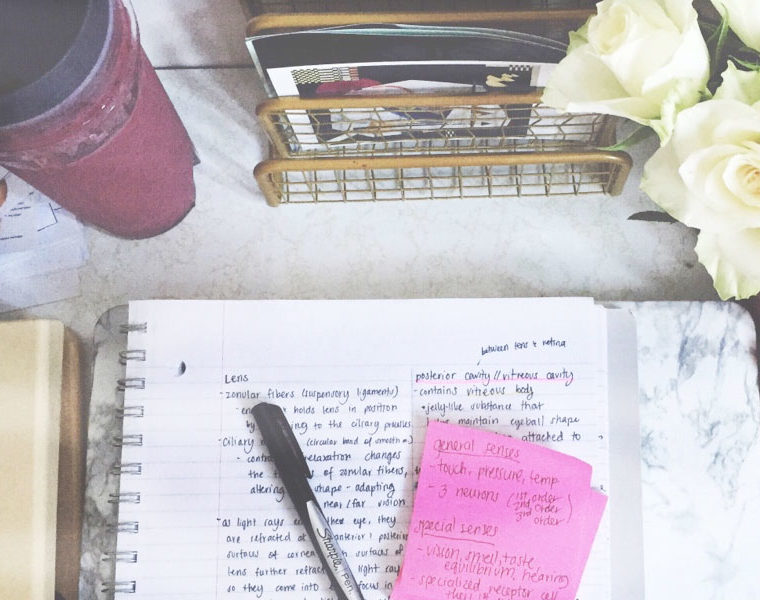 between lens & retina
Lens
- zonular fibers (suspensory ligaments)
holds lens in position
to the ciliary processes
(ciliary (circular band of smooth m.)
- relaxation changes
the of zonular fibers,
altering shape - adapting
near/far vision
- as light rays eye, they
are refracted anterior posterior
surfaces of cornea surfaces of
lens further refract light rays
so they come into focus in
posterior cavity // vitreous cavity
- contains vitreous body
• jelly-like substance that
maintain eyeball shape
attached to
general senses
- touch, pressure, temp
- 3 neurons (1st order
2nd order
3rd order)
special senses
- vision, smell, taste,
equilibrium, hearing
- specialized receptor cell
Sharpie Pen